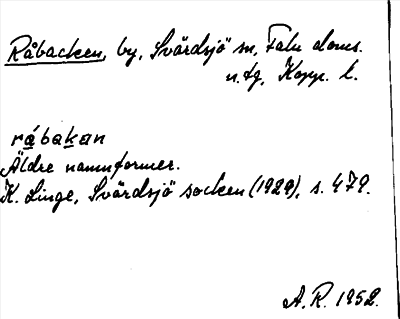 Råbacken, by, Svärdsjö sn, Falu doms.
n. tg, Kopp. l.
råbakan
Äldre namnformer.
K. Linge, Svärdsjö socken (1929), s. 479.
A. R. 1952.